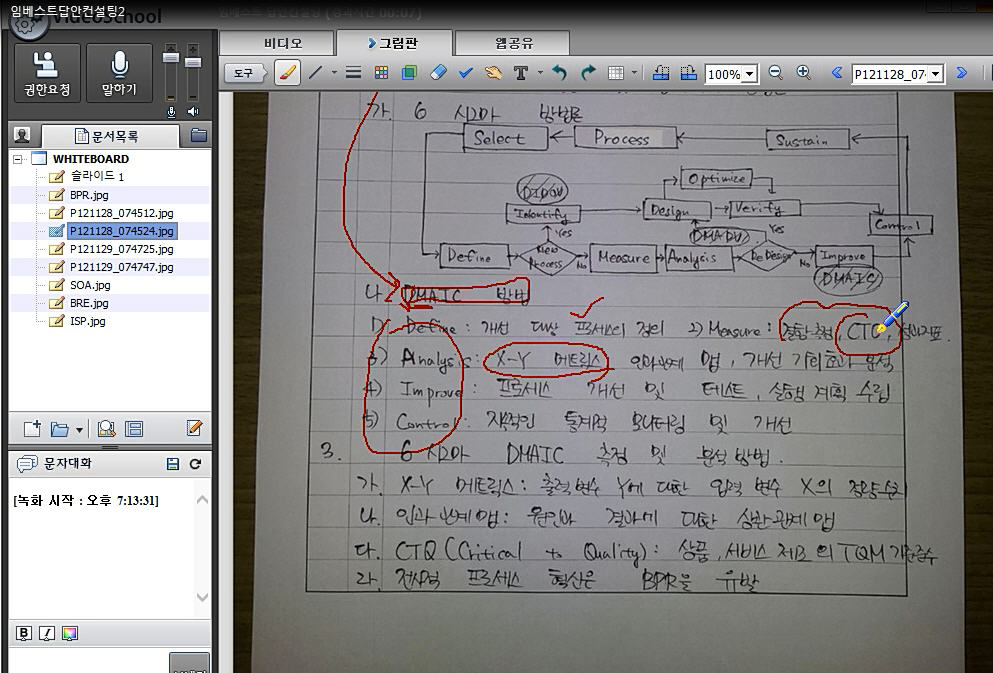 임베스트답안컨설팅2
VideoSchool
임베스트 답안컨설팅 (경과시간 00:07)
권한요청
말하기
비디오
그림판
웹공유
도구
100%
P121128_07
문서목록
WHITEBOARD
슬라이드 1
BPR.jpg
P121128_074512.jpg
P121128_074524.jpg
P121129_074725.jpg
P121129_074747.jpg
SOA.jpg
BRE.jpg
ISP.jpg
문자대화
[녹화 시작 : 오후 7:13:31]
B I
가. 6 시그마 방법론
Select
Process
Sustain
Optimize
DIDOV
Identify
Design
Verify
Control
Yes
DMADV
Yes
Define
New Process
No
Measure
Analysis
ReDesign
No
Improve
DMAIC
나. DMAIC 방법
1) Define : 개선 대상 프로세스의 정의 2) Measure : 결함 측정, CTQ, 성과지표.
3) Analysis : X-Y 메트릭스 인과관계 맵, 개선 기회효과 분석
4) Improve : 프로세스 개선 및 테스트, 실행 계획 수립
5) Control : 지속적인 통계적 모니터링 및 개선
3. 6 시그마 DMAIC 측정 및 분석 방법.
가. X-Y 메트릭스 : 출력 변수 Y에 대한 입력 변수 X의
나. 인과관계맵 : 원인과 결과에 대한 상관관계 맵
다. CTQ (Critical to Quality) : 상품, 서비스 제조의 TQM
라. 전사적 프로세스 혁신은 BPR을 유발